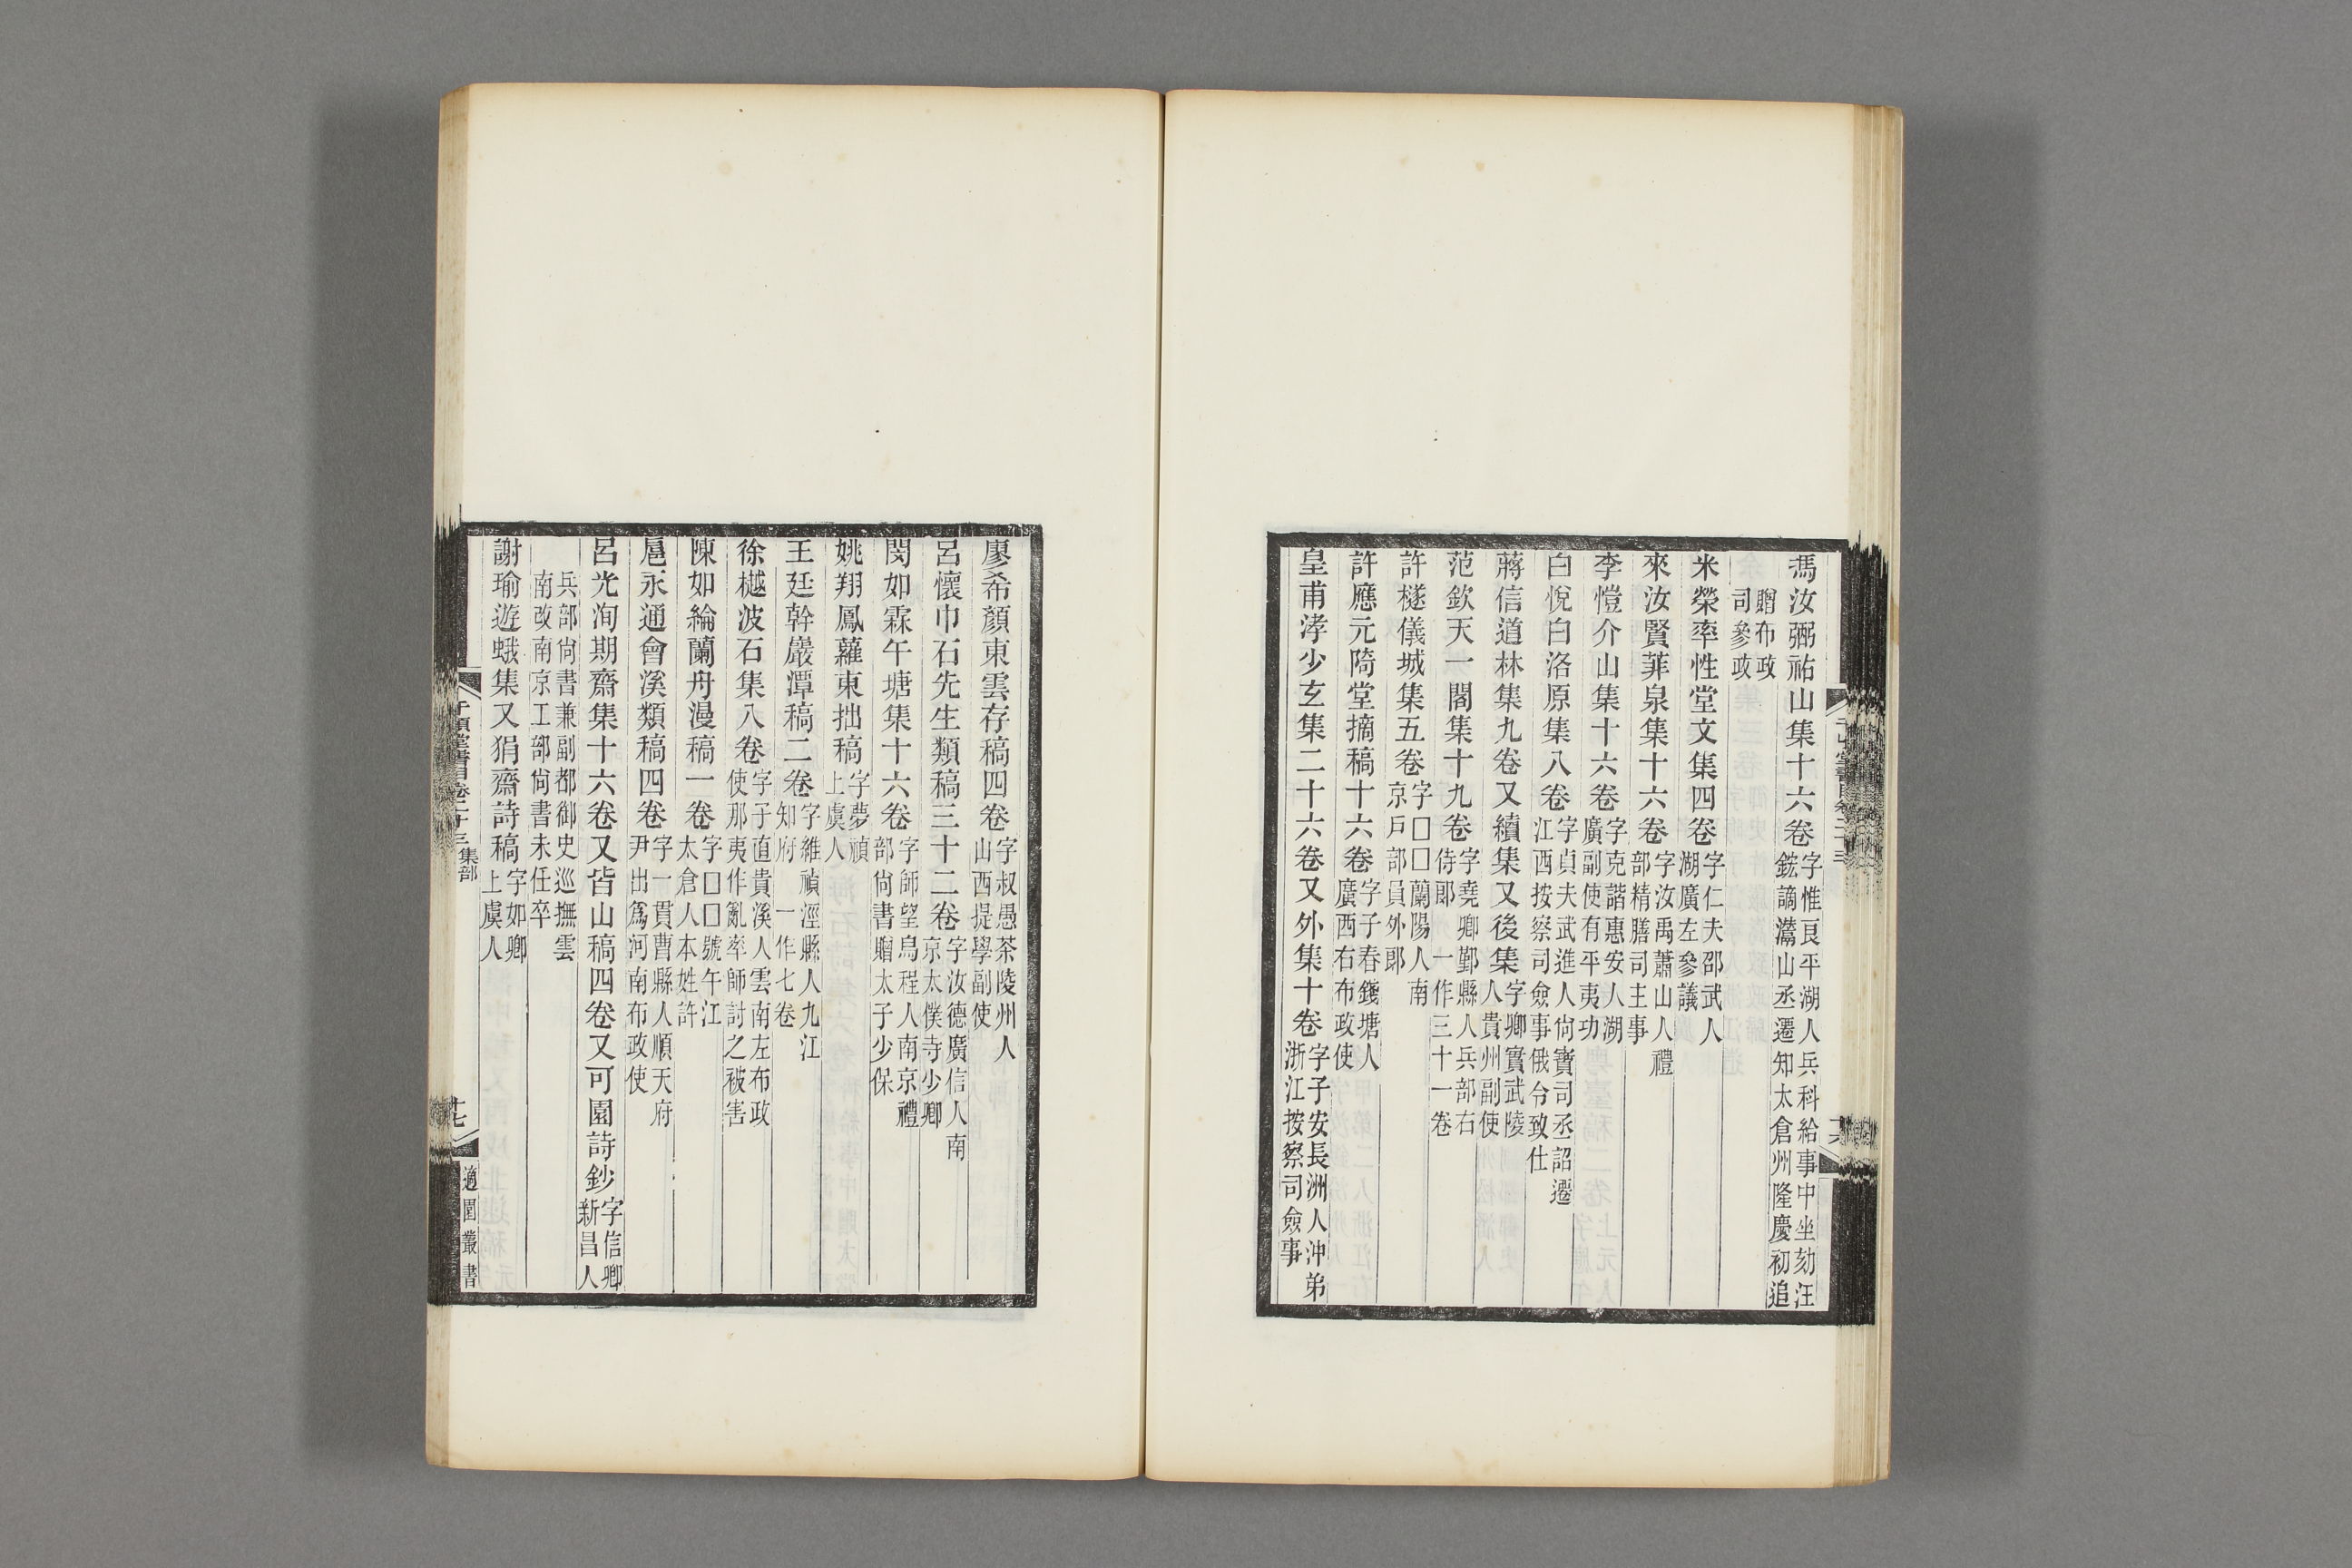 馮汝弼祐山集十六卷字惟良平湖人兵科給事中坐劾汪
鋐謫潛山丞遷知太倉州隆慶初追
贈布政
司參政
米榮率性堂文集四卷字仁夫邵武人
湖廣左參議
來汝賢菲泉集十六卷字汝禹蕭山人禮
部精膳司主事
李愷介山集十六卷字克諧惠安人湖
廣副使有平夷功
白悅白洛原集八卷字貞夫武進人尙寶司丞詔遷
江西按察司僉事俄令致仕
蔣信道林集九卷又續集又後集字卿實武陵
人貴州副使
范欽天一閣集十九卷字堯卿鄞縣人兵部右
侍郞一作三十一卷
許檖儀城集五卷字□□蘭陽人南
京戶部員外郞
許應元陭堂摘稿十六卷字子春錢塘人
廣西右布政使
皇甫涍少玄集二十六卷又外集十卷字子安長洲人沖弟
浙江按察司僉事
廖希顏東雲存稿四卷字叔愚茶陵州人
山西提學副使
呂懷巾石先生類稿三十二卷字汝德廣信人南
京太僕寺少卿
閔如霖午塘集十六卷字師望烏程人南京禮
部尙書贈太子少保
姚翔鳳蘿東拙稿字夢禎
上虞人
王廷幹巖潭稿二卷字維禎涇縣人九江
知府 一作七卷
徐樾波石集八卷字子直貴溪人雲南左布政
使那夷作亂率師討之被害
陳如綸蘭舟漫稿一卷字□□號午江
太倉人本姓許
扈永通會溪類稿四卷字一貫曹縣人順天府
尹出爲河南布政使
呂光洵期齋集十六卷又皆山稿四卷又可園詩鈔字信卿
新昌人
兵部尙書兼副都御史巡撫雲
南改南京工部尙書未任卒
謝瑜遊蛾集又狷齋詩稿字如卿
上虞人
千頃堂書目卷二十三 集部
十七
適園叢書